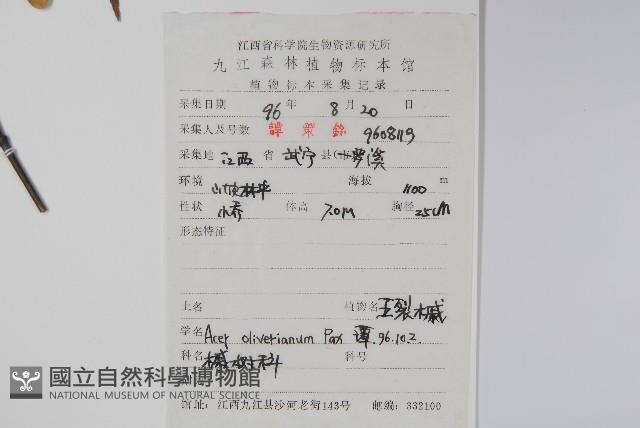 江西省科学院生物资源研究所
九江森林植物标本馆
植物标本采集记录
采集日期 96 年 8 月 20 日
采集人及号数 譚策銘 9608113
采集地 江西 省 武宁 县(市) 罗溪
环境 山顶林中 海拔 1100 m
性状 小乔 体高 7.0M 胸径 25cM
形态特征
土名 植物名 五裂槭
学名 Acer oliverianum Pax 谭.96.10.2.
科名 槭树科 科号
國立自然科學博物館
NATIONAL MUSEUM OF NATURAL SCIENCE
馆址：江西九江县沙河老街143号 邮编：332100